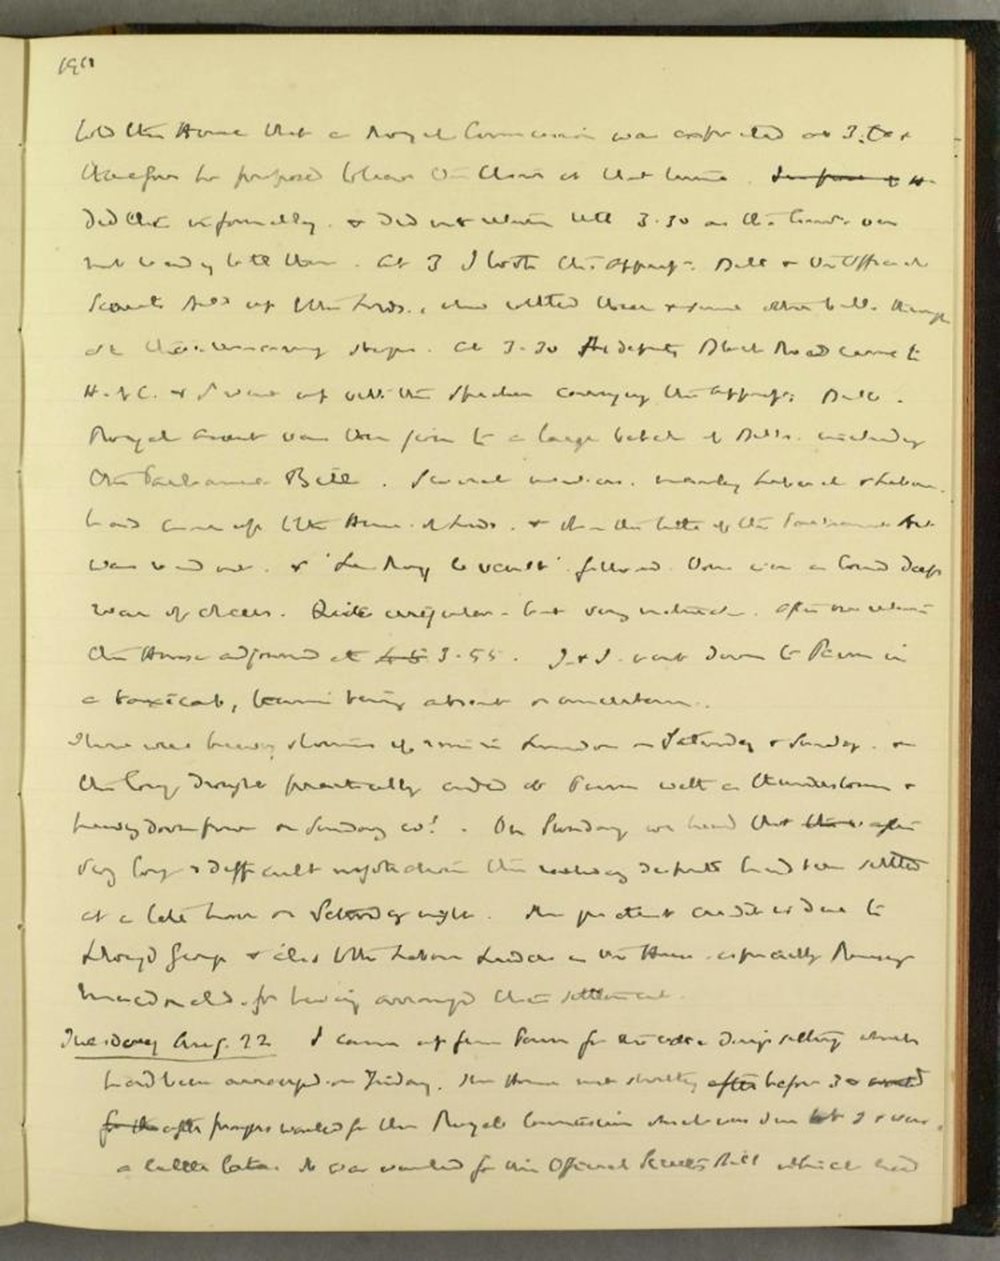 1911
told the House that a Royal Commission was expected at 3.30 &
therefore he proposed to leave the Chair at that time.
did this informally. & did not return till 3.30 as the Lords were
not ready till then. At 3 I took the Approp: Bill & the Official
Secrets Bill up to the Lords, who settled these & some other bills through
all their remaining stages. At 3.30 the deputy Black Rod came to
H. of C. & I went up with the Speaker carrying the Approp: Bill.
Royal Assent was then given to a large batch of Bills including
the Parliament Bill. Several members, mainly Liberal & Labour,
had come up to the House of Lords, & when the title of the Parliament Act
was read out, & 'Le Roy le veult' followed there was a loud deep
roar of cheers. Quite irregular - but very natural. After our return
the House adjourned at 4.5 3.55. J. & I went down to Penn in
a taxicab, trains being absent or uncertain.
There were heavy storms of rain in London on Saturday & Sunday. &
the long drought practically ended at Penn with a thunderstorm &
heavy downpour on Sunday aft. On Sunday we heard that after
very long & difficult negotiation the railway dispute had been settled
at a late hour on Saturday night. The greatest credit is due to
Lloyd George & also to the Labour Leaders in the House especially Ramsay
Macdonald, for having arranged this settlement.
Tuesday Aug. 22 I came up from Penn for the extra days sitting which
had been arranged on Friday. The House met shortly after before 3 &
for the after prayers waited for the Royal Commission which was due at 3 & was
a little late. It was wanted for the Official Secrets Bill which had